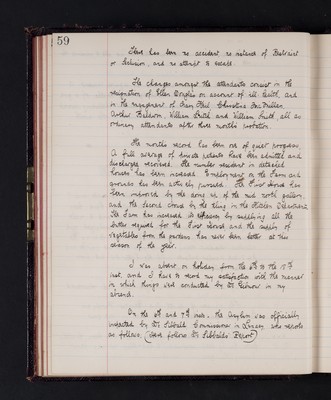 59
There has been no accident, no instance of Restraint
or Seclusion, and no attempt to escape.
The changes amongst the attendants consist in the
resignation of Ellen on account of ill health, and
in the engagement of Christina MacMillan,
Baldwin, William Smith and William Smith, all as
ordinary attendants after three months probation.
The months record has been one of quiet progress.
A full average of private patients have been admitted and
discharges recovered. The number resident in detached
houses has been increased. Employment on the Farm and
grounds has been actively pursued. The First House has
been improved by the of the mid north gallery,
and the Second House by the tiling in the Kitchen Department.
The Farm has increased its efficiency by supplying all the
butter required for the First House and the supply of
vegetables from the gardens has never been better at this
season of the year.
I was absent on holiday from the 6th to the 15th
inst. and I have to record my satisfaction with the manner
in which things were conducted by Dr in my
absence.
On the 6th and 7th inst. the Asylum was officially
inspected by Dr Sibbald Commissioner in Lunacy who reports
as follows (here follows Dr Sibbald's Report)